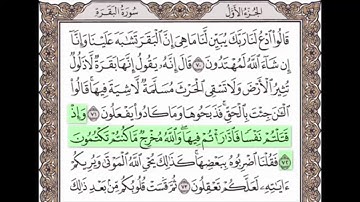 الجزء الأول
سورة البقرة
قالوا ادع لنا ربك يبين لنا ما هي إن البقر تشبه علينا وإنا
إن شاء الله لمهتدون ٧٠ قال إنه يقول إنها بقرة لا ذلول
تثير الأرض ولا تسقي الحرث مسلمة لا شية فيها قالوا
الآن جئت بالحق فذبحوها وما كادوا يفعلون ٧١ وإذ
قتلتم نفسا فادارأتم فيها والله مخرج ما كنتم تكتمون
٧٢ فقلنا اضربوه ببعضها كذلك يحي الله الموتى ويريكم
آياته لعلكم تعقلون ٧٣ ثم قست قلوبكم من بعد ذلك